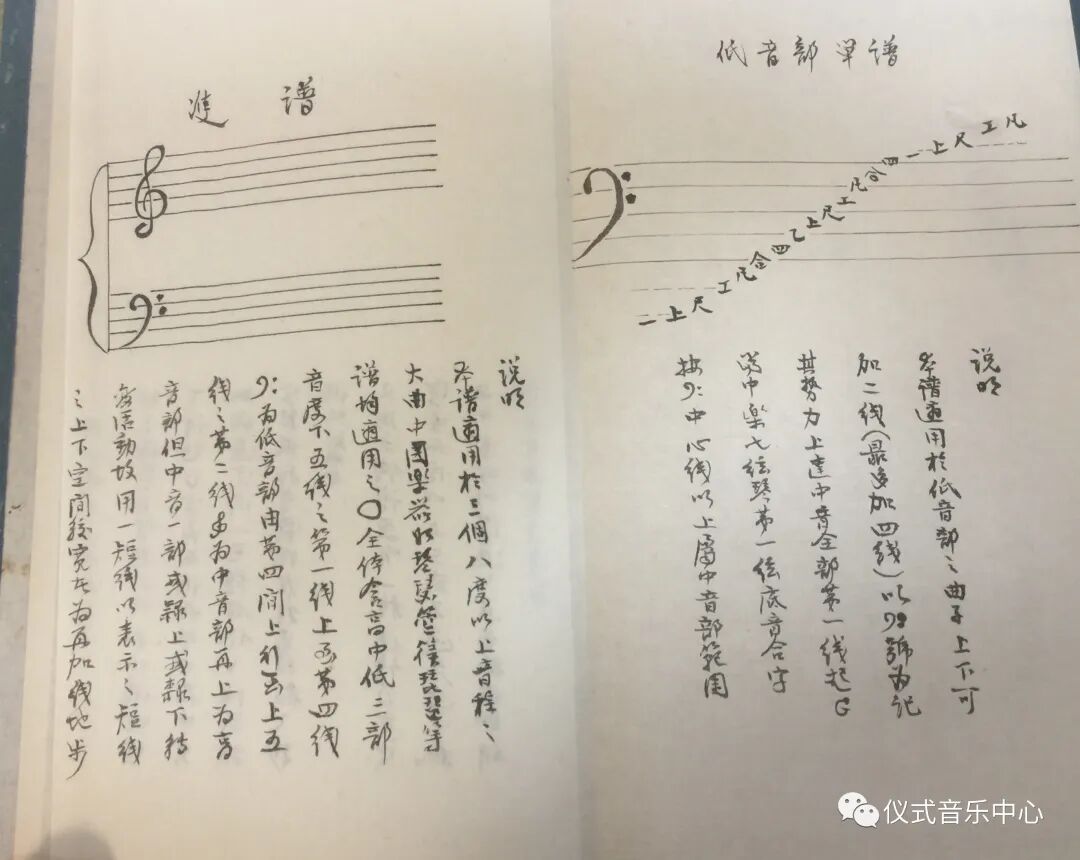 低音部单谱
一上尺工凡合四乙上尺工凡合四一上尺工凡
说明
本谱適用於低音部之曲子上下可
加二线(最多加四线)以9:號为记
其势力上達中音全部第一线起G
為中樂七絃琴第一絃底音合字
按9:中心线以上屬中音部範围
連谱
说明
本谱適用於三個八度以上音程之
大曲中國樂器如琴瑟箜篌琵琶等
谱均適用之〇全体含高中低三部
音度下五线之第一线上至第四线
9:为低音部由第四間上行至上五
线之第二线为中音部再上为高
音部但中音一部或隸上或隸下
活動故用一短线以表示之短线
之上下空間較宽为再加线地步
仪式音乐中心